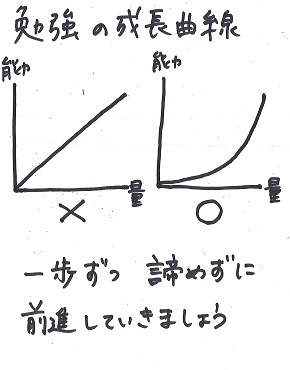 勉強の成長曲線
能力 能力
量 量
× ○
一歩ずつ 諦めずに
前進していきましょう